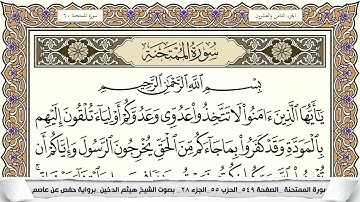 الجزء الثامن والعشرون
سورة الممتحنة ٦٠
سُورَةُ الْمُمْتَحَنَةِ
بِسْمِ اللَّهِ الرَّحْمَٰنِ الرَّحِيمِ
يَا أَيُّهَا الَّذِينَ ءَامَنُوا لَا تَتَّخِذُوا عَدُوِّي وَعَدُوَّكُمْ أَوْلِيَاءَ تُلْقُونَ إِلَيْهِم
بِالْمَوَدَّةِ وَقَدْ كَفَرُوا بِمَا جَاءَكُم مِّنَ الْحَقِّ يُخْرِجُونَ الرَّسُولَ وَإِيَّاكُمْ أَن
سورة الممتحنة _الصفحة ٥٤٩_الحزب ٥٥_الجزء ٢٨_ بصوت الشيخ هيثم الدخين _برواية حفص عن عاصم